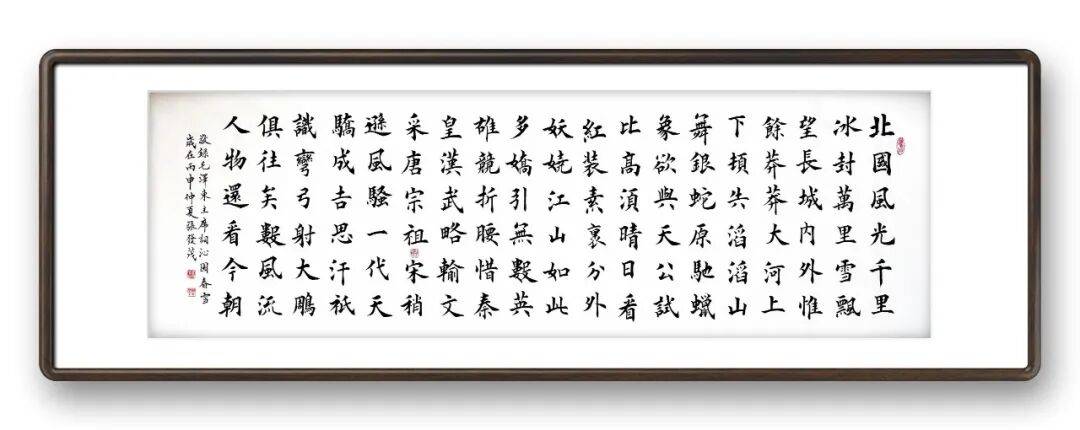 北國風光千里
冰封萬里雪飄
望長城內外惟
餘莽莽大河上
下頓失滔滔山
舞銀蛇原馳蠟
象欲與天公試
比高須晴日看
紅裝素裹分外
妖嬈江山如此
多嬌引無數英
雄競折腰惜秦
皇漢武略輸文
采唐宗祖宋稍
遜風騷一代天
驕成吉思汗祇
識彎弓射大鵰
俱往矣數風流
人物還看今朝
敬錄毛澤東主席詞沁園春雪
歲在丙申仲夏張發茂